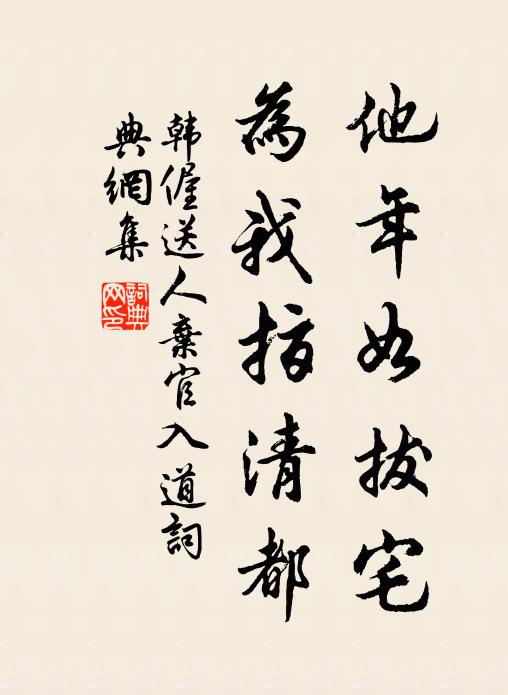 他年如拔宅
為我指清都
韩偓送人棄官入道詞
典網集
詞典网印